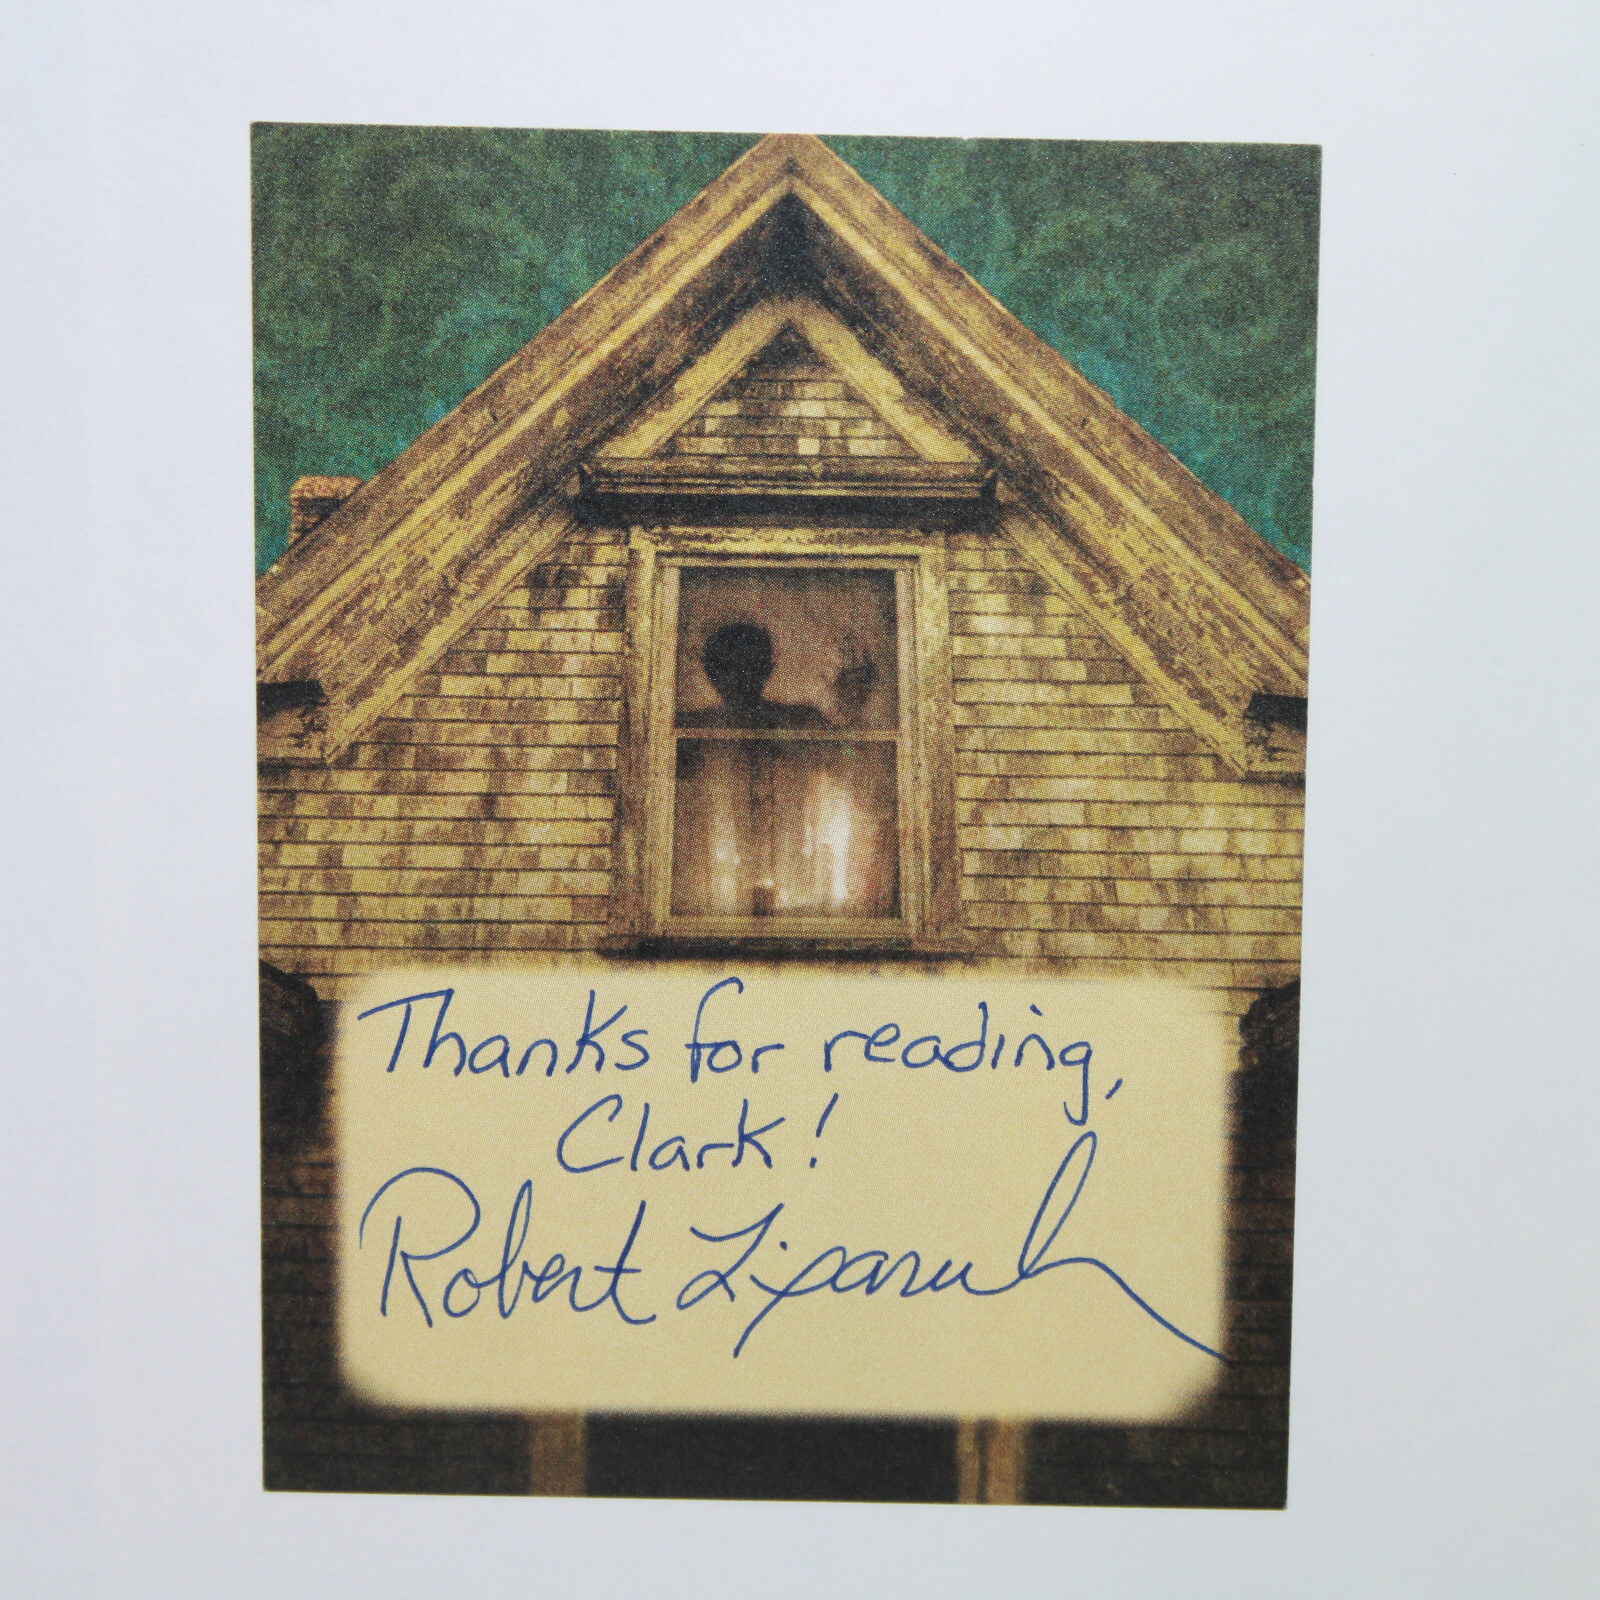 Thanks for reading,
Clark!
Robert Liparulo